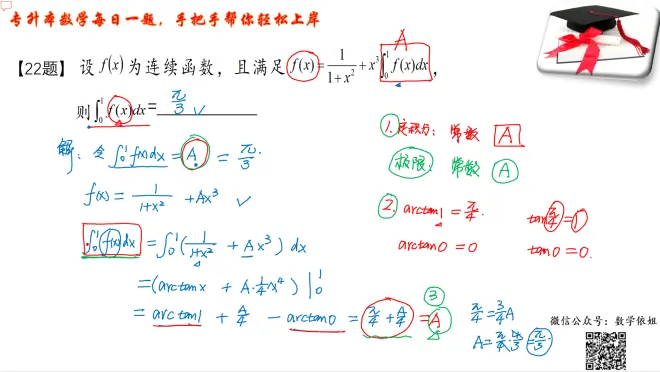 专升本数学每日一题，手把手帮你轻松上岸
【22题】设 f(x) 为连续函数，且满足 f(x) = 1/(1+x²) + x³∫₀¹ f(x)dx，
A
则 ∫₀¹ f(x)dx = π/3 ✓
解：令 ∫₀¹ f(x)dx = A = π/3.
f(x) = 1/(1+x²) + Ax³ ✓
∫₀¹ f(x)dx = ∫₀¹ (1/(1+x²) + Ax³) dx
= (arctanx + A·¼x⁴) |₀¹
= arctan1 + A/4 − arctan0 = π/4 + A/4 = A
③
1. 定积分：常数 A
极限：常数 A
2. arctan1 = π/4. tan π/4 = 1
arctan0 = 0 tan0 = 0.
π/4 = ¾A
A = π/4 · 4/3 = π/3
微信公众号：数学依姐